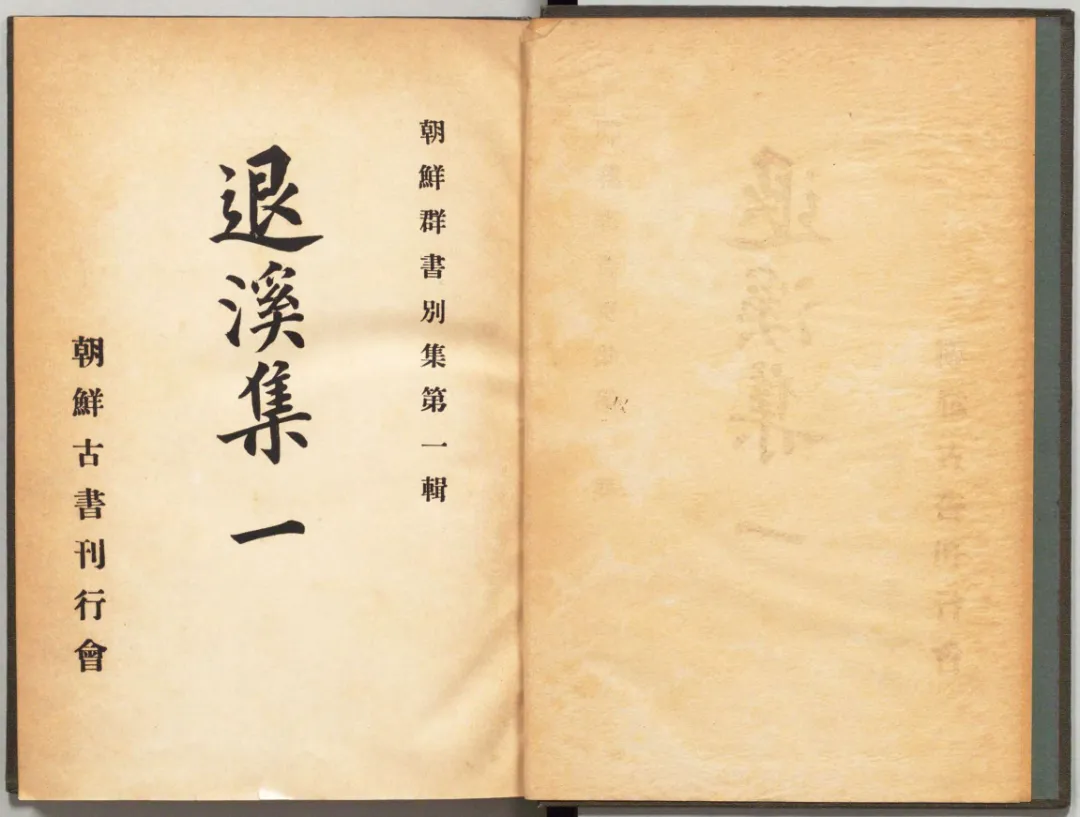 朝鮮群書別集第一輯
退溪集 一
朝鮮古書刊行會